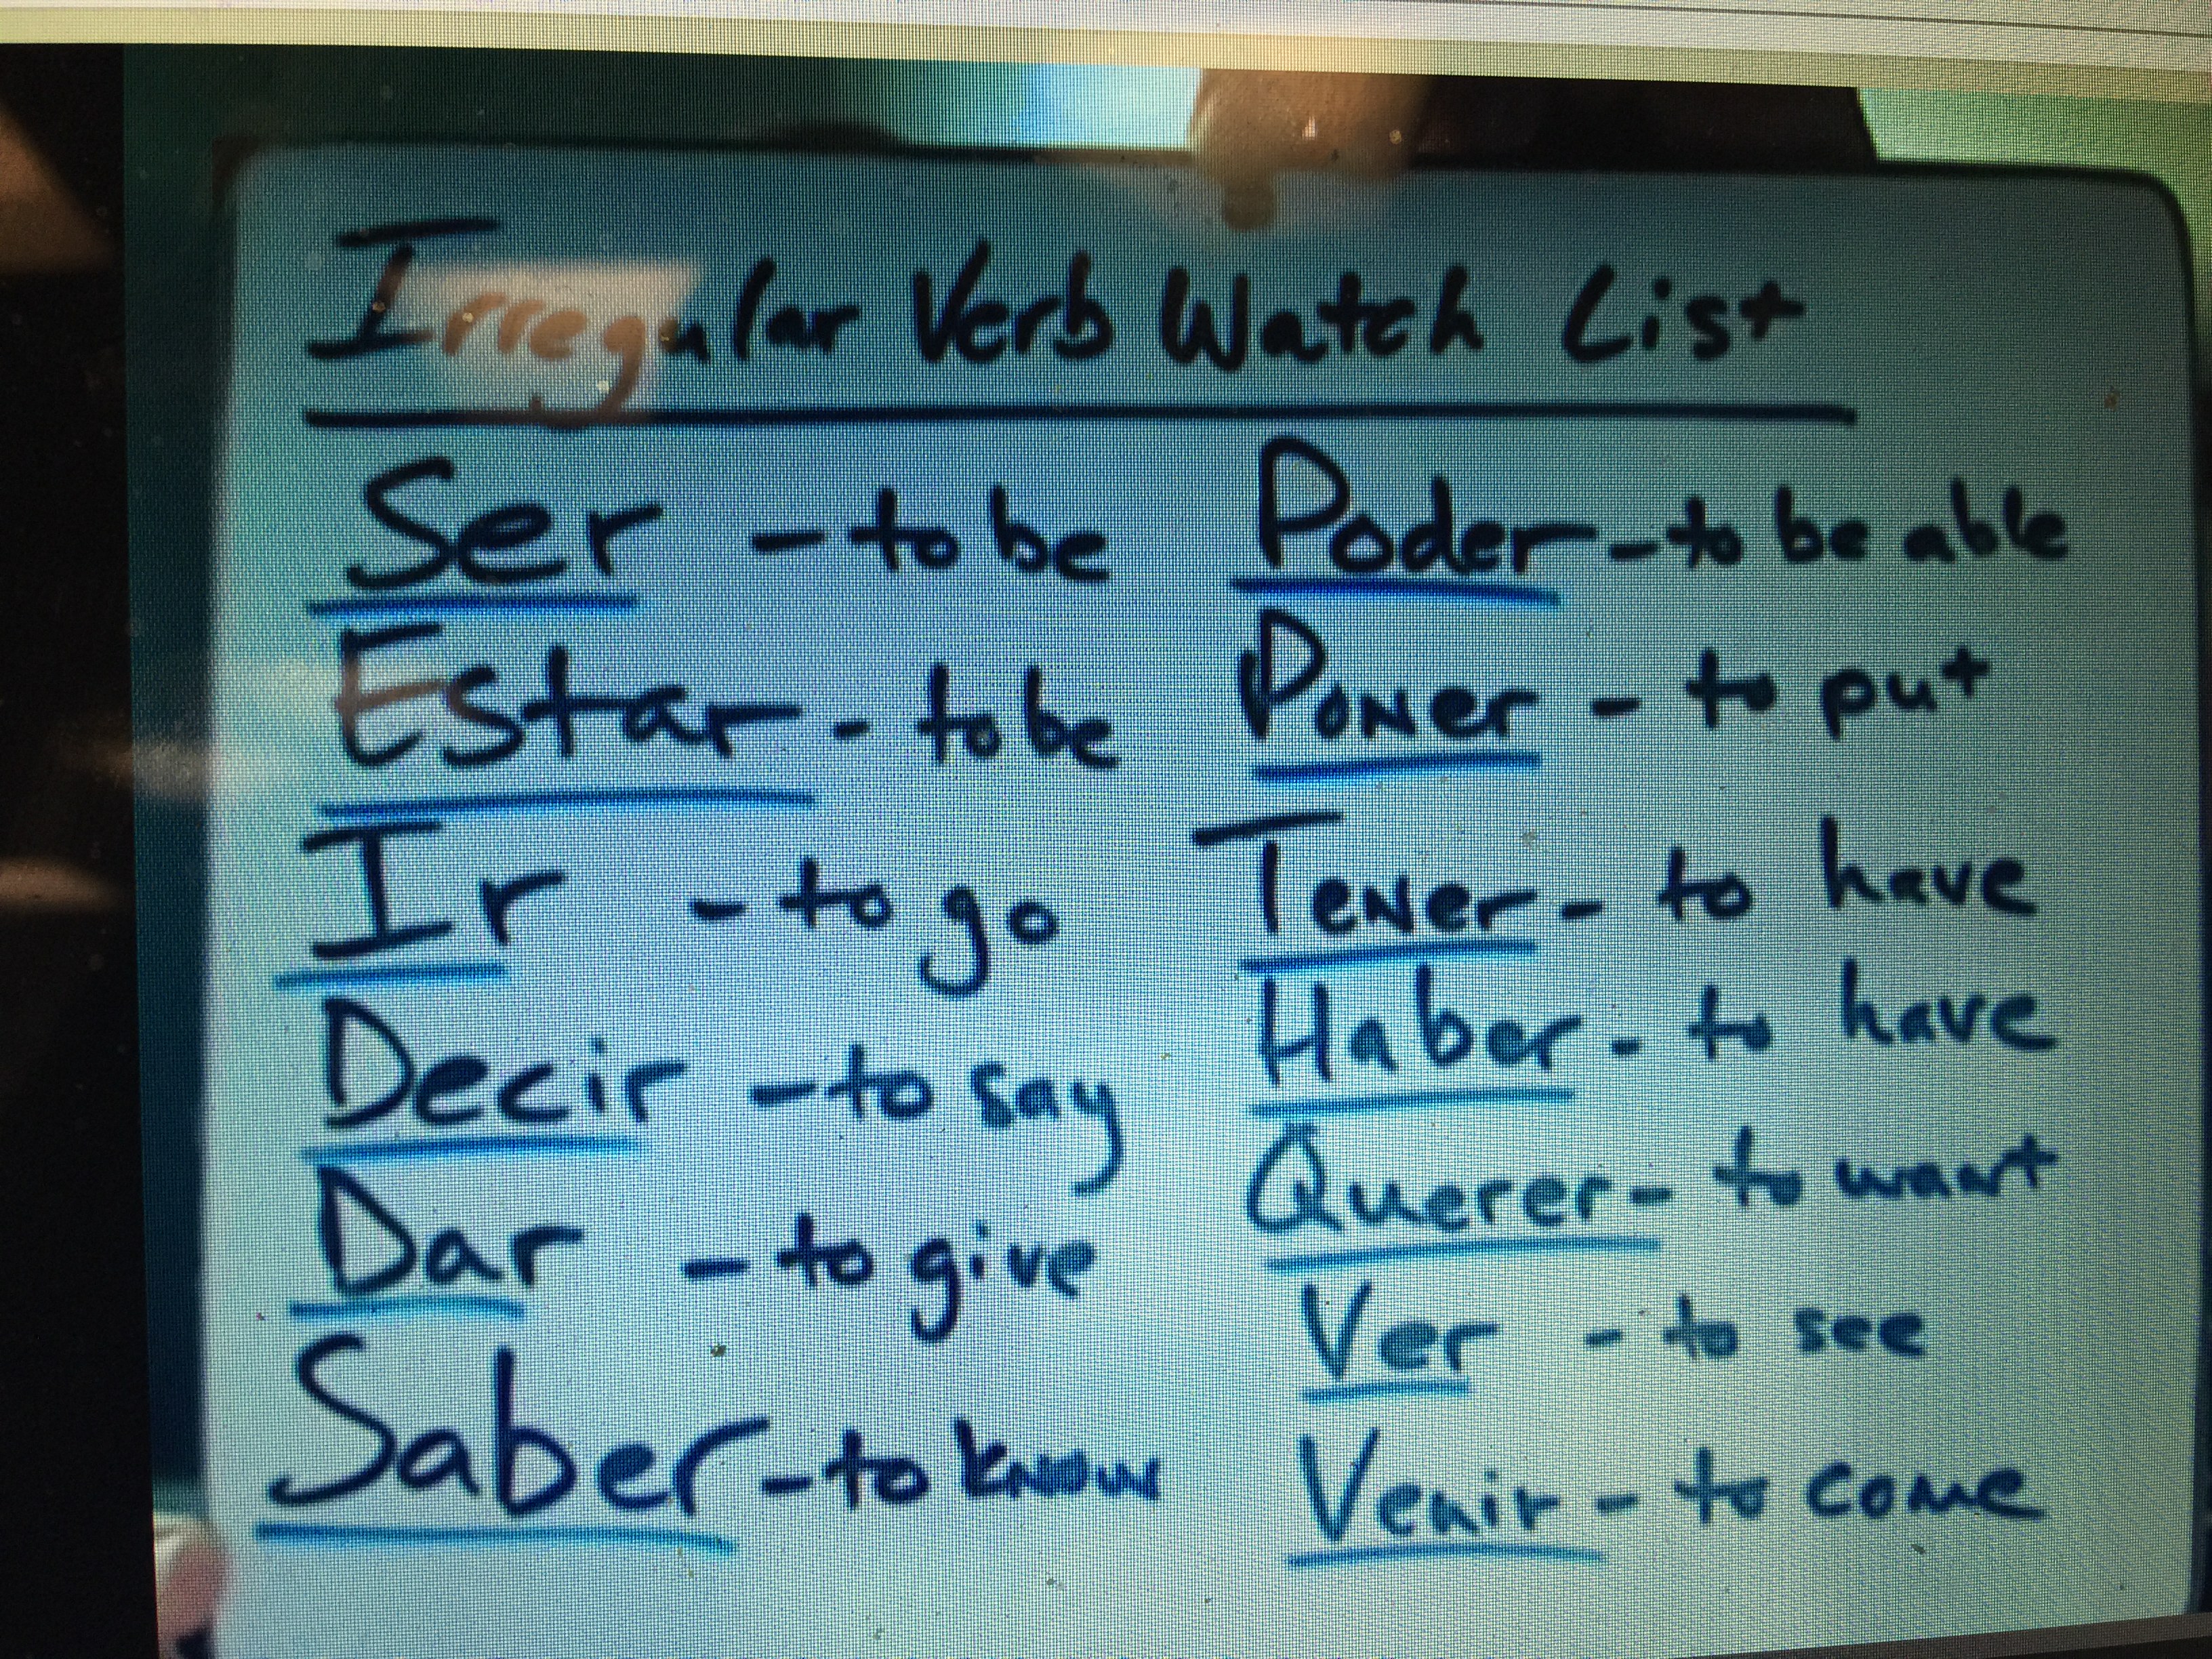 Irregular Verb Watch List
Ser - to be
Estar - to be
Ir - to go
Decir - to say
Dar - to give
Saber - to know
Poder - to be able
Poner - to put
Tener - to have
Haber - to have
Querer - to want
Ver - to see
Venir - to come